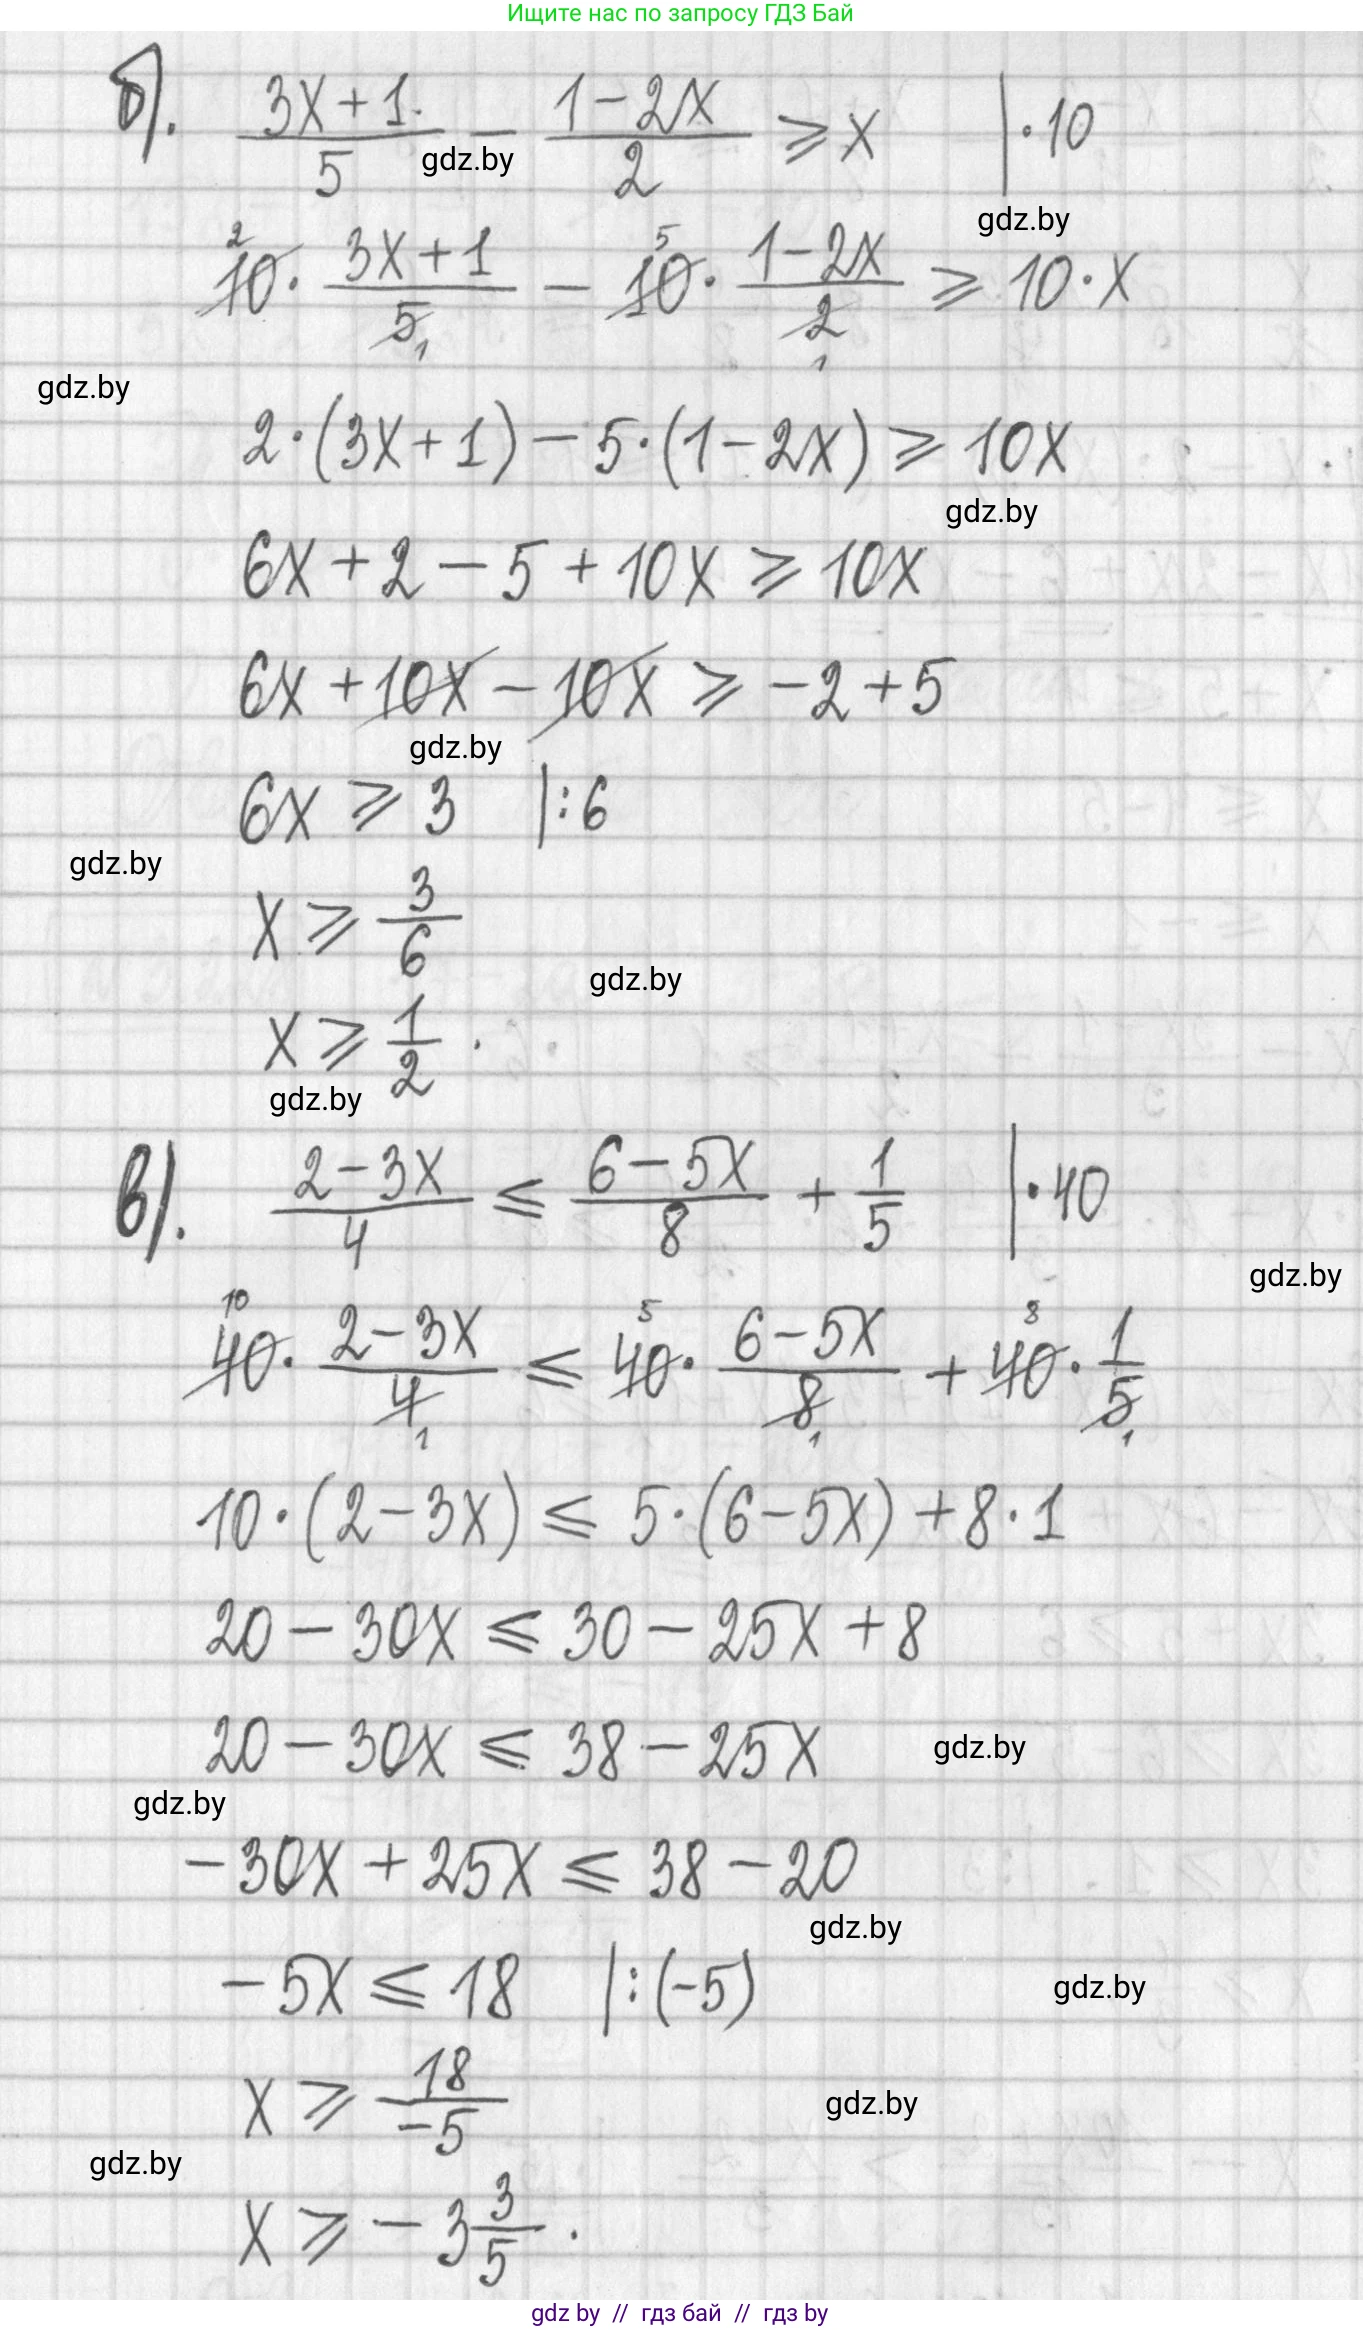 Ищите нас по запросу ГДЗ Бай
б). (3x+1)/5 − (1−2x)/2 ⩾ x |·10
gdz.by
gdz.by
²10 · (3x+1)/5₁ − ⁵10 · (1−2x)/2₁ ⩾ 10·x
gdz.by
2·(3x+1) − 5·(1−2x) ⩾ 10x
gdz.by
6x + 2 − 5 + 10x ⩾ 10x
6x + 10x − 10x ⩾ −2 + 5
gdz.by
6x ⩾ 3 |:6
gdz.by
x ⩾ 3/6
gdz.by
x ⩾ 1/2.
gdz.by
в). (2−3x)/4 ⩽ (6−5x)/8 + 1/5 |·40
gdz.by
¹⁰40 · (2−3x)/4₁ ⩽ ⁵40 · (6−5x)/8₁ + ⁸40 · 1/5₁
10·(2−3x) ⩽ 5·(6−5x) + 8·1
20 − 30x ⩽ 30 − 25x + 8
20 − 30x ⩽ 38 − 25x
gdz.by
gdz.by
−30x + 25x ⩽ 38 − 20
gdz.by
−5x ⩽ 18 |:(−5)
gdz.by
x ⩾ 18/−5
gdz.by
gdz.by
x ⩾ −3 3/5.
gdz by // гдз бай // гдз by